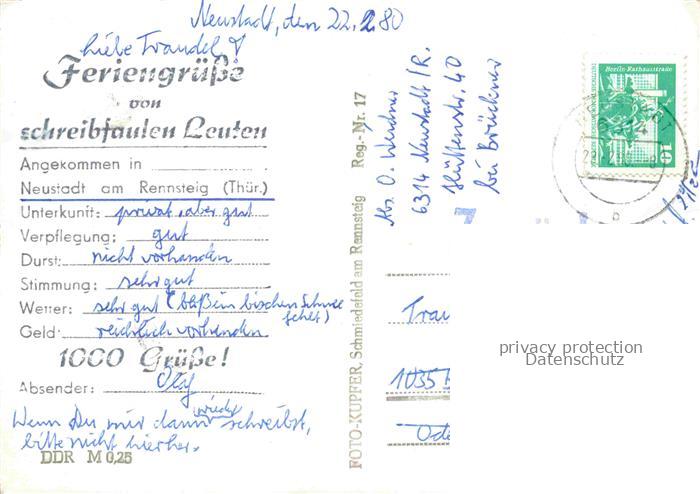 Neustadt, den 22.2.80
Liebe Traudel!
Feriengrüße
von
schreibfaulen Leuten
Angekommen in
Neustadt am Rennsteig (Thür.)
Unterkunft: privat, aber gut
Verpflegung: gut
Durst: nicht vorhanden
Stimmung: sehr gut
Wetter: sehr gut (bloß ein bischen Schnee
fehlt)
Geld: reichlich vorhanden
1000 Grüße!
Absender: Olaf
Wenn Du mir dann wieder schreibst,
bitte nicht hierher.
DDR M 0,25
FOTO-KUPFER, Schmiedefeld am Rennsteig Reg.-Nr. 17
Abs. O.
6314 Neustadt/R.
Hüttenstr. 40
bei Brückner
Berlin, Rathausstraße
10
Trau
1035
Ode
privacy protection
Datenschutz